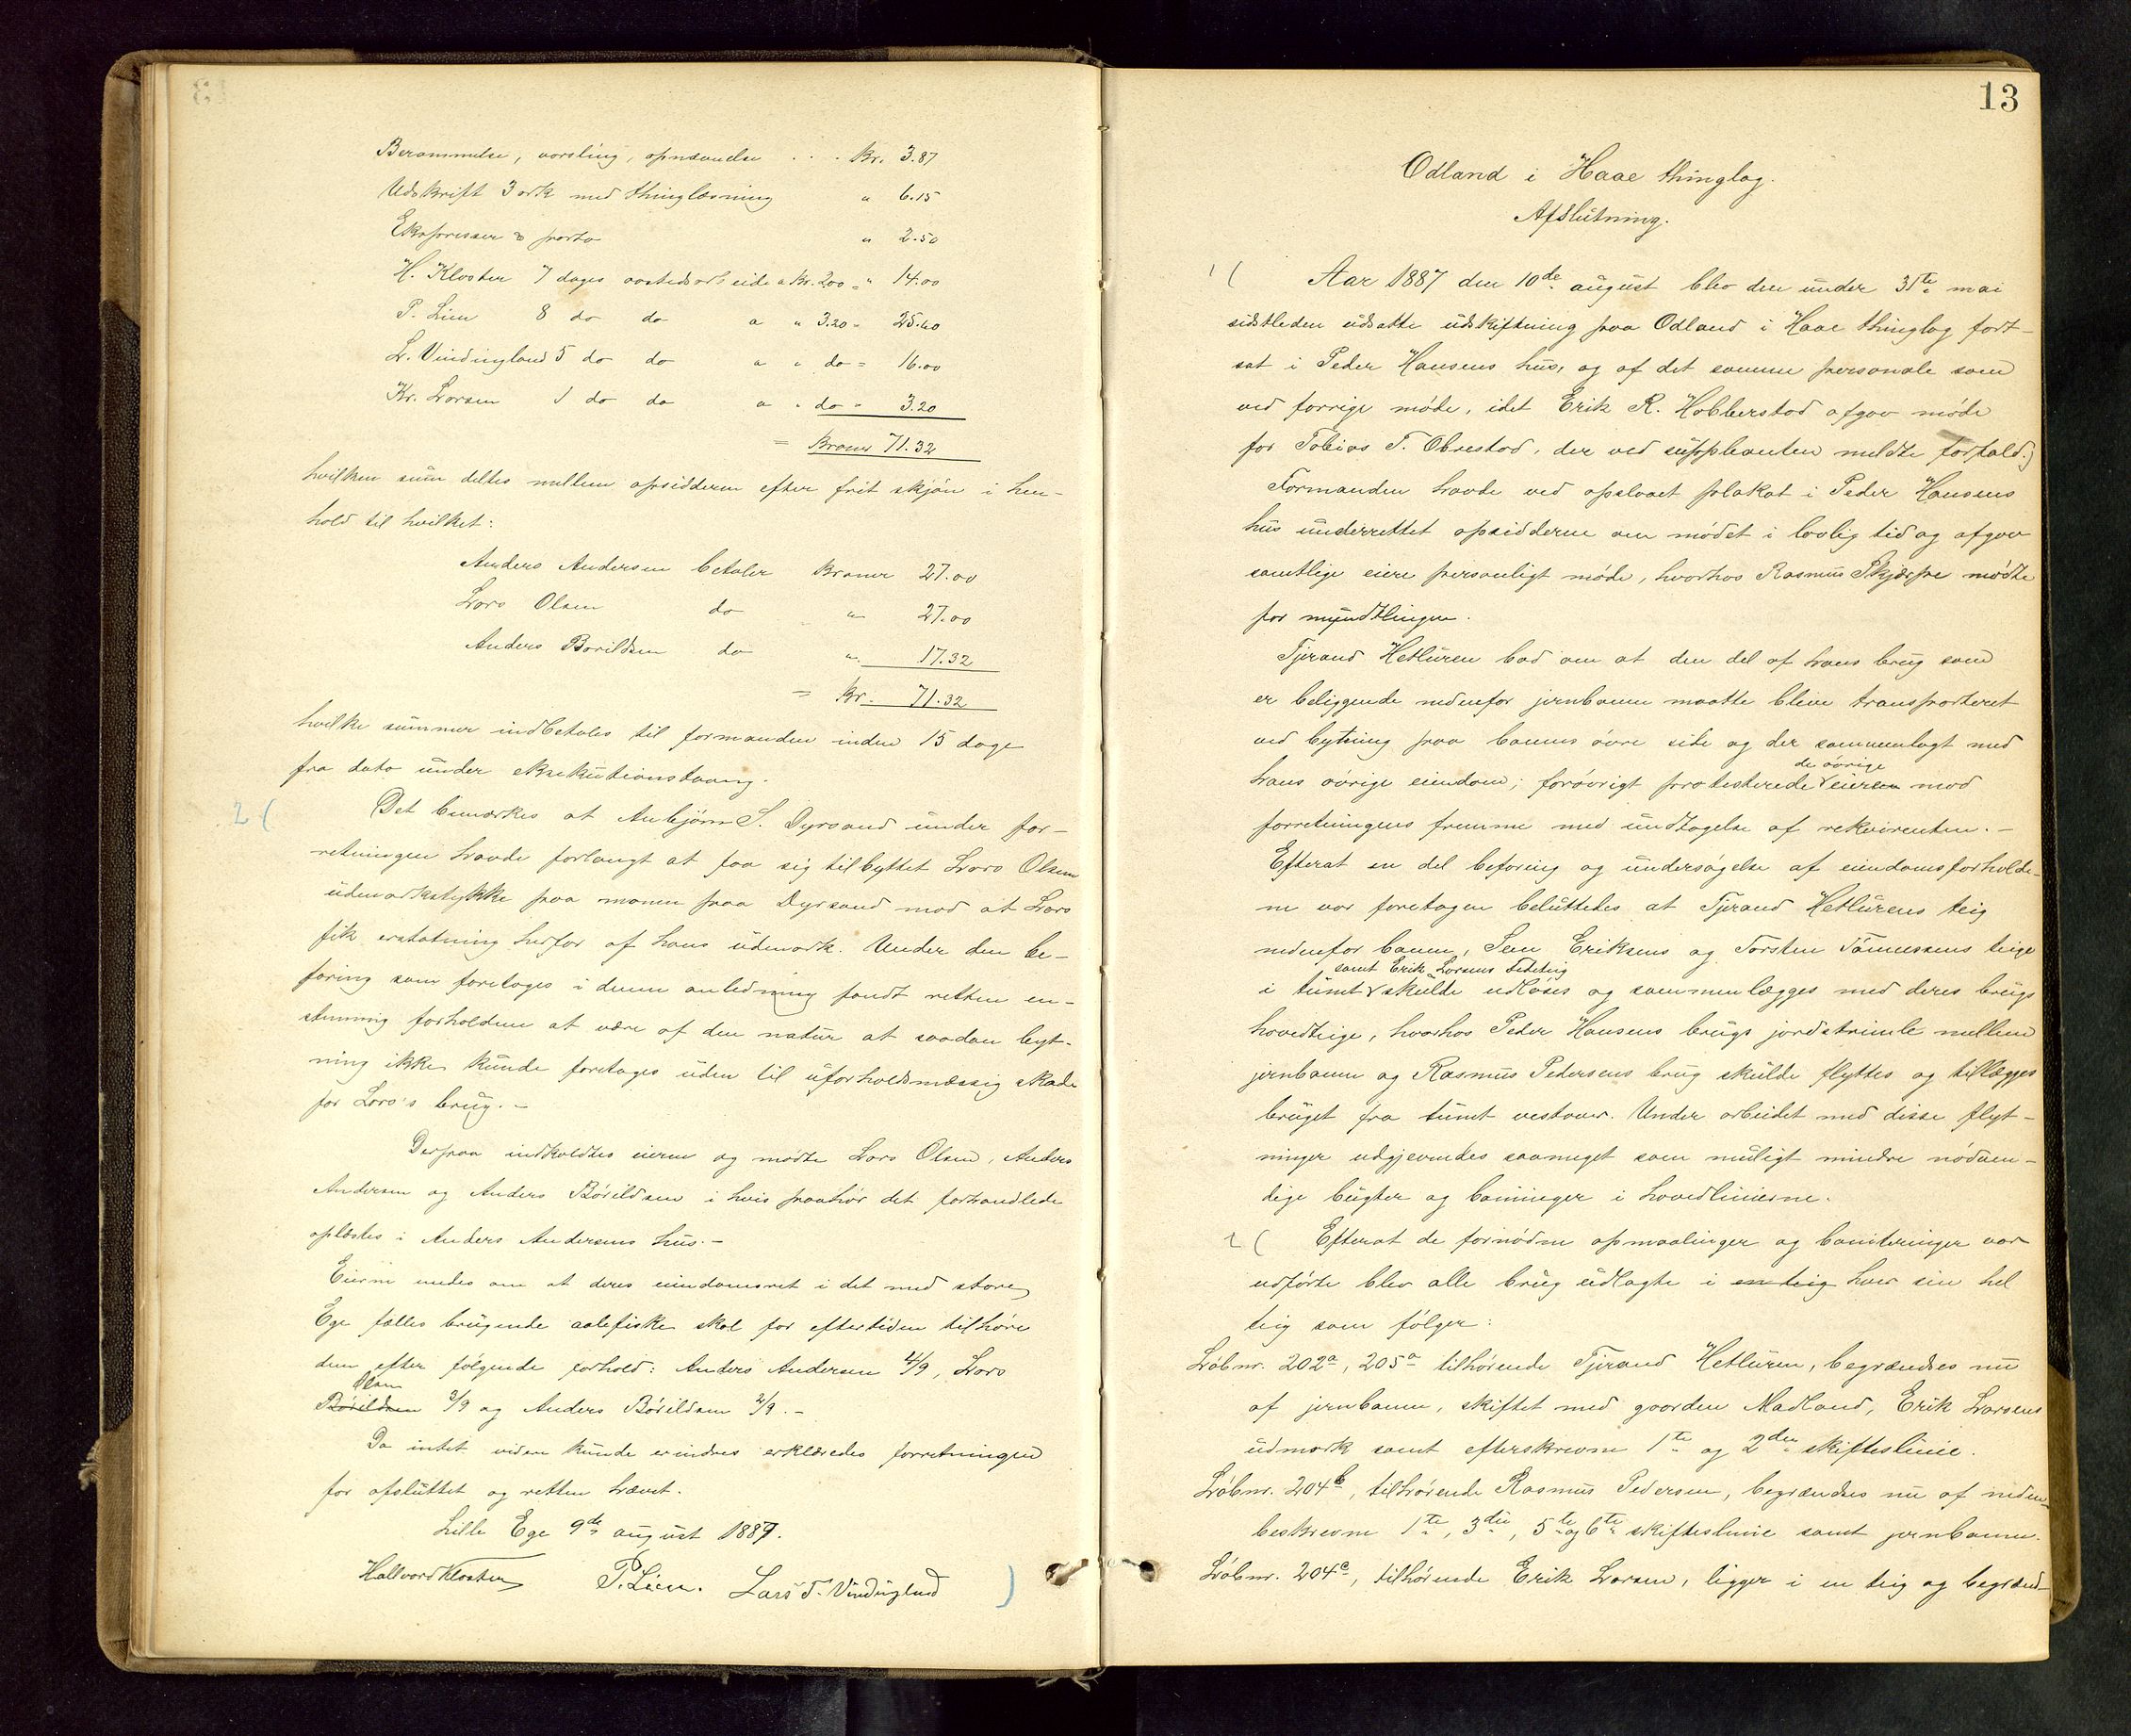 Berammelse, varsling, opnævnelse . . . Kr. 3.87
Udskrift 3 ark med thinglæsning " 6.15
Ekspresser & porto " 2.50
H. Kloster 7 dages aastedsarbeide a Kr. 2.00 = " 14.00
P. Lien 8 do do a " 3.20 = 25.60
L. Vindingland 5 do do a " do = 16.00
Kr. Larsen 1 do do a " do = 3.20
= Kroner 71.32
hvilken sum deltes mellem opsidderne efter frit skjøn i hen-
hold til hvilket:
Anders Andersen betaler Kroner 27.00
Lars Olsen do " 27.00
Anders Bårildsen do " 17.32
= Kr. 71.32
hvilke summer indbetales til formanden inden 15 dage
fra dato under eksekutionstvang.
2 ( Det bemærkes at Anbjørn S. Dyrsand under for-
retningen havde forlangt at faa sig tilbyttet Lars Olsens
udemarkstykke paa monen paa Dyrsand mod at Lars
fik erstatning herfor af hans udmark. Under den be-
faring som foretoges i denne anledning fandt retten en-
stemmig forholdene at være af den natur at saadan byt-
ning ikke kunde foretages uden til uforholdsmæssig skade
for Lars's brug. -
Derpaa indkaldtes eierne og mødte Lars Olsen, Anders
Andersen og Anders Bårildsen i hvis paahør det forhandlede
oplæstes i Anders Andersens hus. -
Eierne enedes om at deres eiendomsret i det med store
Ege fælles brugende aalefiske skal for eftertiden tilhøre
dem efter følgende forhold: Anders Andersen 4/9, Lars
Olsen
Bårildsen 3/9 og Anders Bårildsen 2/9. -
Da intet videre kunde erindres erklæredes forretningen
for afsluttet og retten hævet.
Lille Ege 9de august 1887.
Hallvard Kloster P. Lien. Lars T. Vindingland )
13
Odland i Haae thinglag.
Afslutning.
1 ( Aar 1887 den 10de august blev den under 31te mai
sidstleden udsatte udskiftning paa Odland i Haae thinglag fort-
sat i Peder Hansens hus, og af det samme personale som
ved forrige møde, idet Erik R. Hobberstad afgav møde
for Tobias T. Obrestad, der ved suppleanten meldte forfald.)
Formanden havde ved opslaaet plakat i Peder Hansens
hus underrettet opsidderne om mødet i lovlig tid og afgav
samtlige eiere personligt møde, hvorhos Rasmus Skjærpe mødte
for myndtlingen.
Tjerand Hetluren bad om at den del af hans brug som
er beliggende nedenfor jernbanen maatte blive transporteret
ved bytning paa banens øvre side og der sammenlagt med
de øvrige
hans øvrige eiendom; forøvrigt protesterede eieren mod
forretningens fremme med undtagelse af rekvirenten. -
Efterat en del befaring og undersøgelse af eiendomsforholde-
ne var foretagen besluttedes at Tjerand Hetlurens teig
nedenfor banen, Sem Eriksens og Torsten Tønnessens teige
samt Erik Larsens Fedeteig
i tunet skulde udløses og sammenlægges med deres brugs
hovedteige, hvorhos Peder Hansens brugs jordstrimle mellem
jernbanen og Rasmus Pedersens brug skulde flyttes og tillægges
bruget fra tunet vestover. Under arbeidet med disse flyt-
ninger udgjevnedes saameget som muligt mindre nødven-
dige bugter og bøininger i hovedlinierne.
2 ( Efterat de fornødne opmaalinger og boniteringer var
udførte blev alle brug udlagte i en teig hver sin hel
teig som følger:
Løbnr. 202a, 205a tilhørende Tjerand Hetluren, begrændses nu
af jernbanen, skiftet med gaarden Madland, Erik Larsens
udmark samt efterskrevne 1te og 2den skifteslinie.
Løbnr. 204b, tilhørende Rasmus Pedersen, begrændses nu af neden-
beskrevne 1te, 3die, 5te og 6te skifteslinie samt jernbanen.
Løbnr. 204c, tilhørende Erik Larsen, ligger i en teig og begrænd-